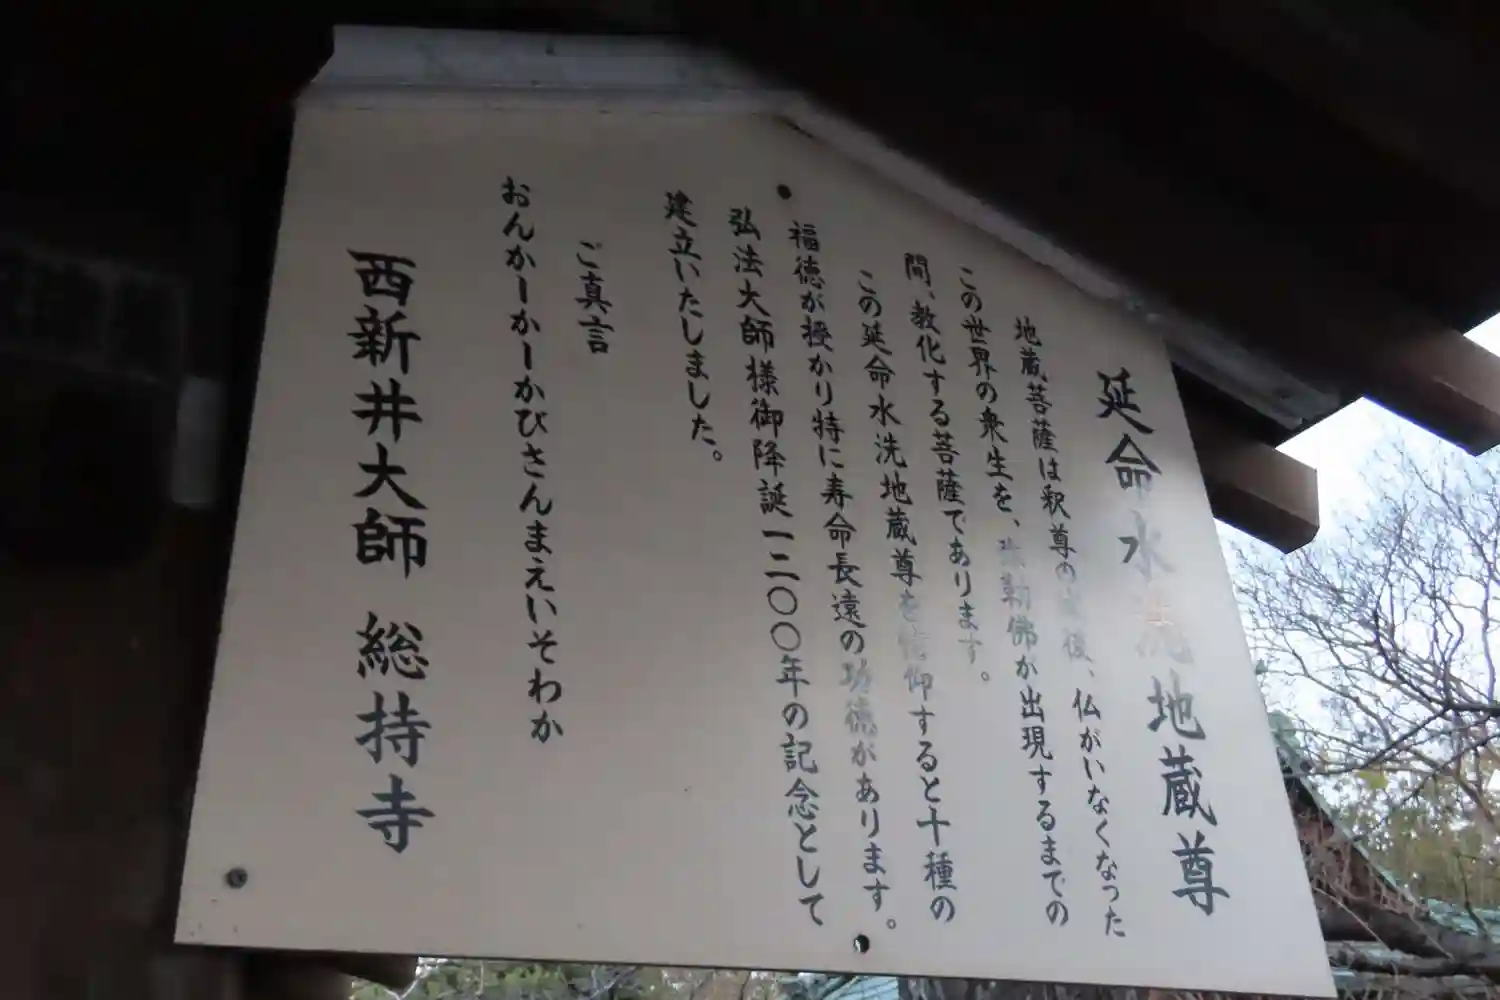 延命水洗地蔵尊
地蔵菩薩は釈尊の 後、仏がいなくなった
この世界の衆生を、弥勒佛が出現するまでの
間、教化する菩薩であります。
この延命水洗地蔵尊を信仰すると十種の
福徳が授かり特に寿命長遠の功徳があります。
弘法大師様御降誕一二〇〇年の記念として
建立いたしました。
ご真言
おんかーかーかびさんまえいそわか
西新井大師 総持寺